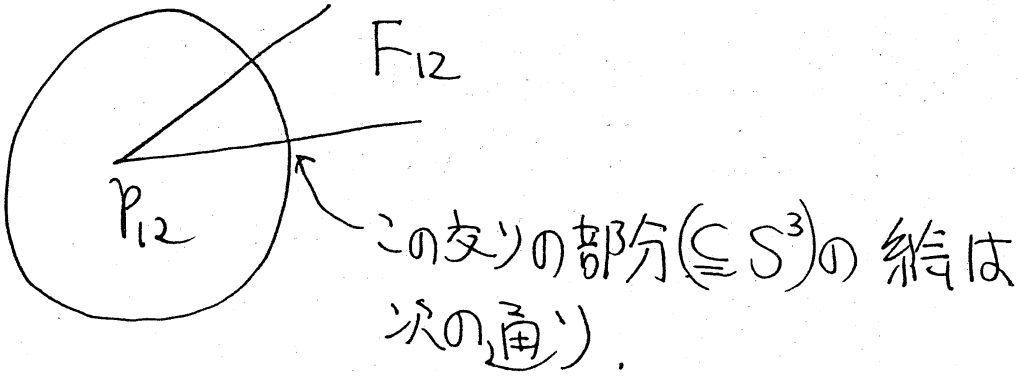 F₁₂
p₁₂
この交りの部分(⊆S³)の絵は
次の通り.